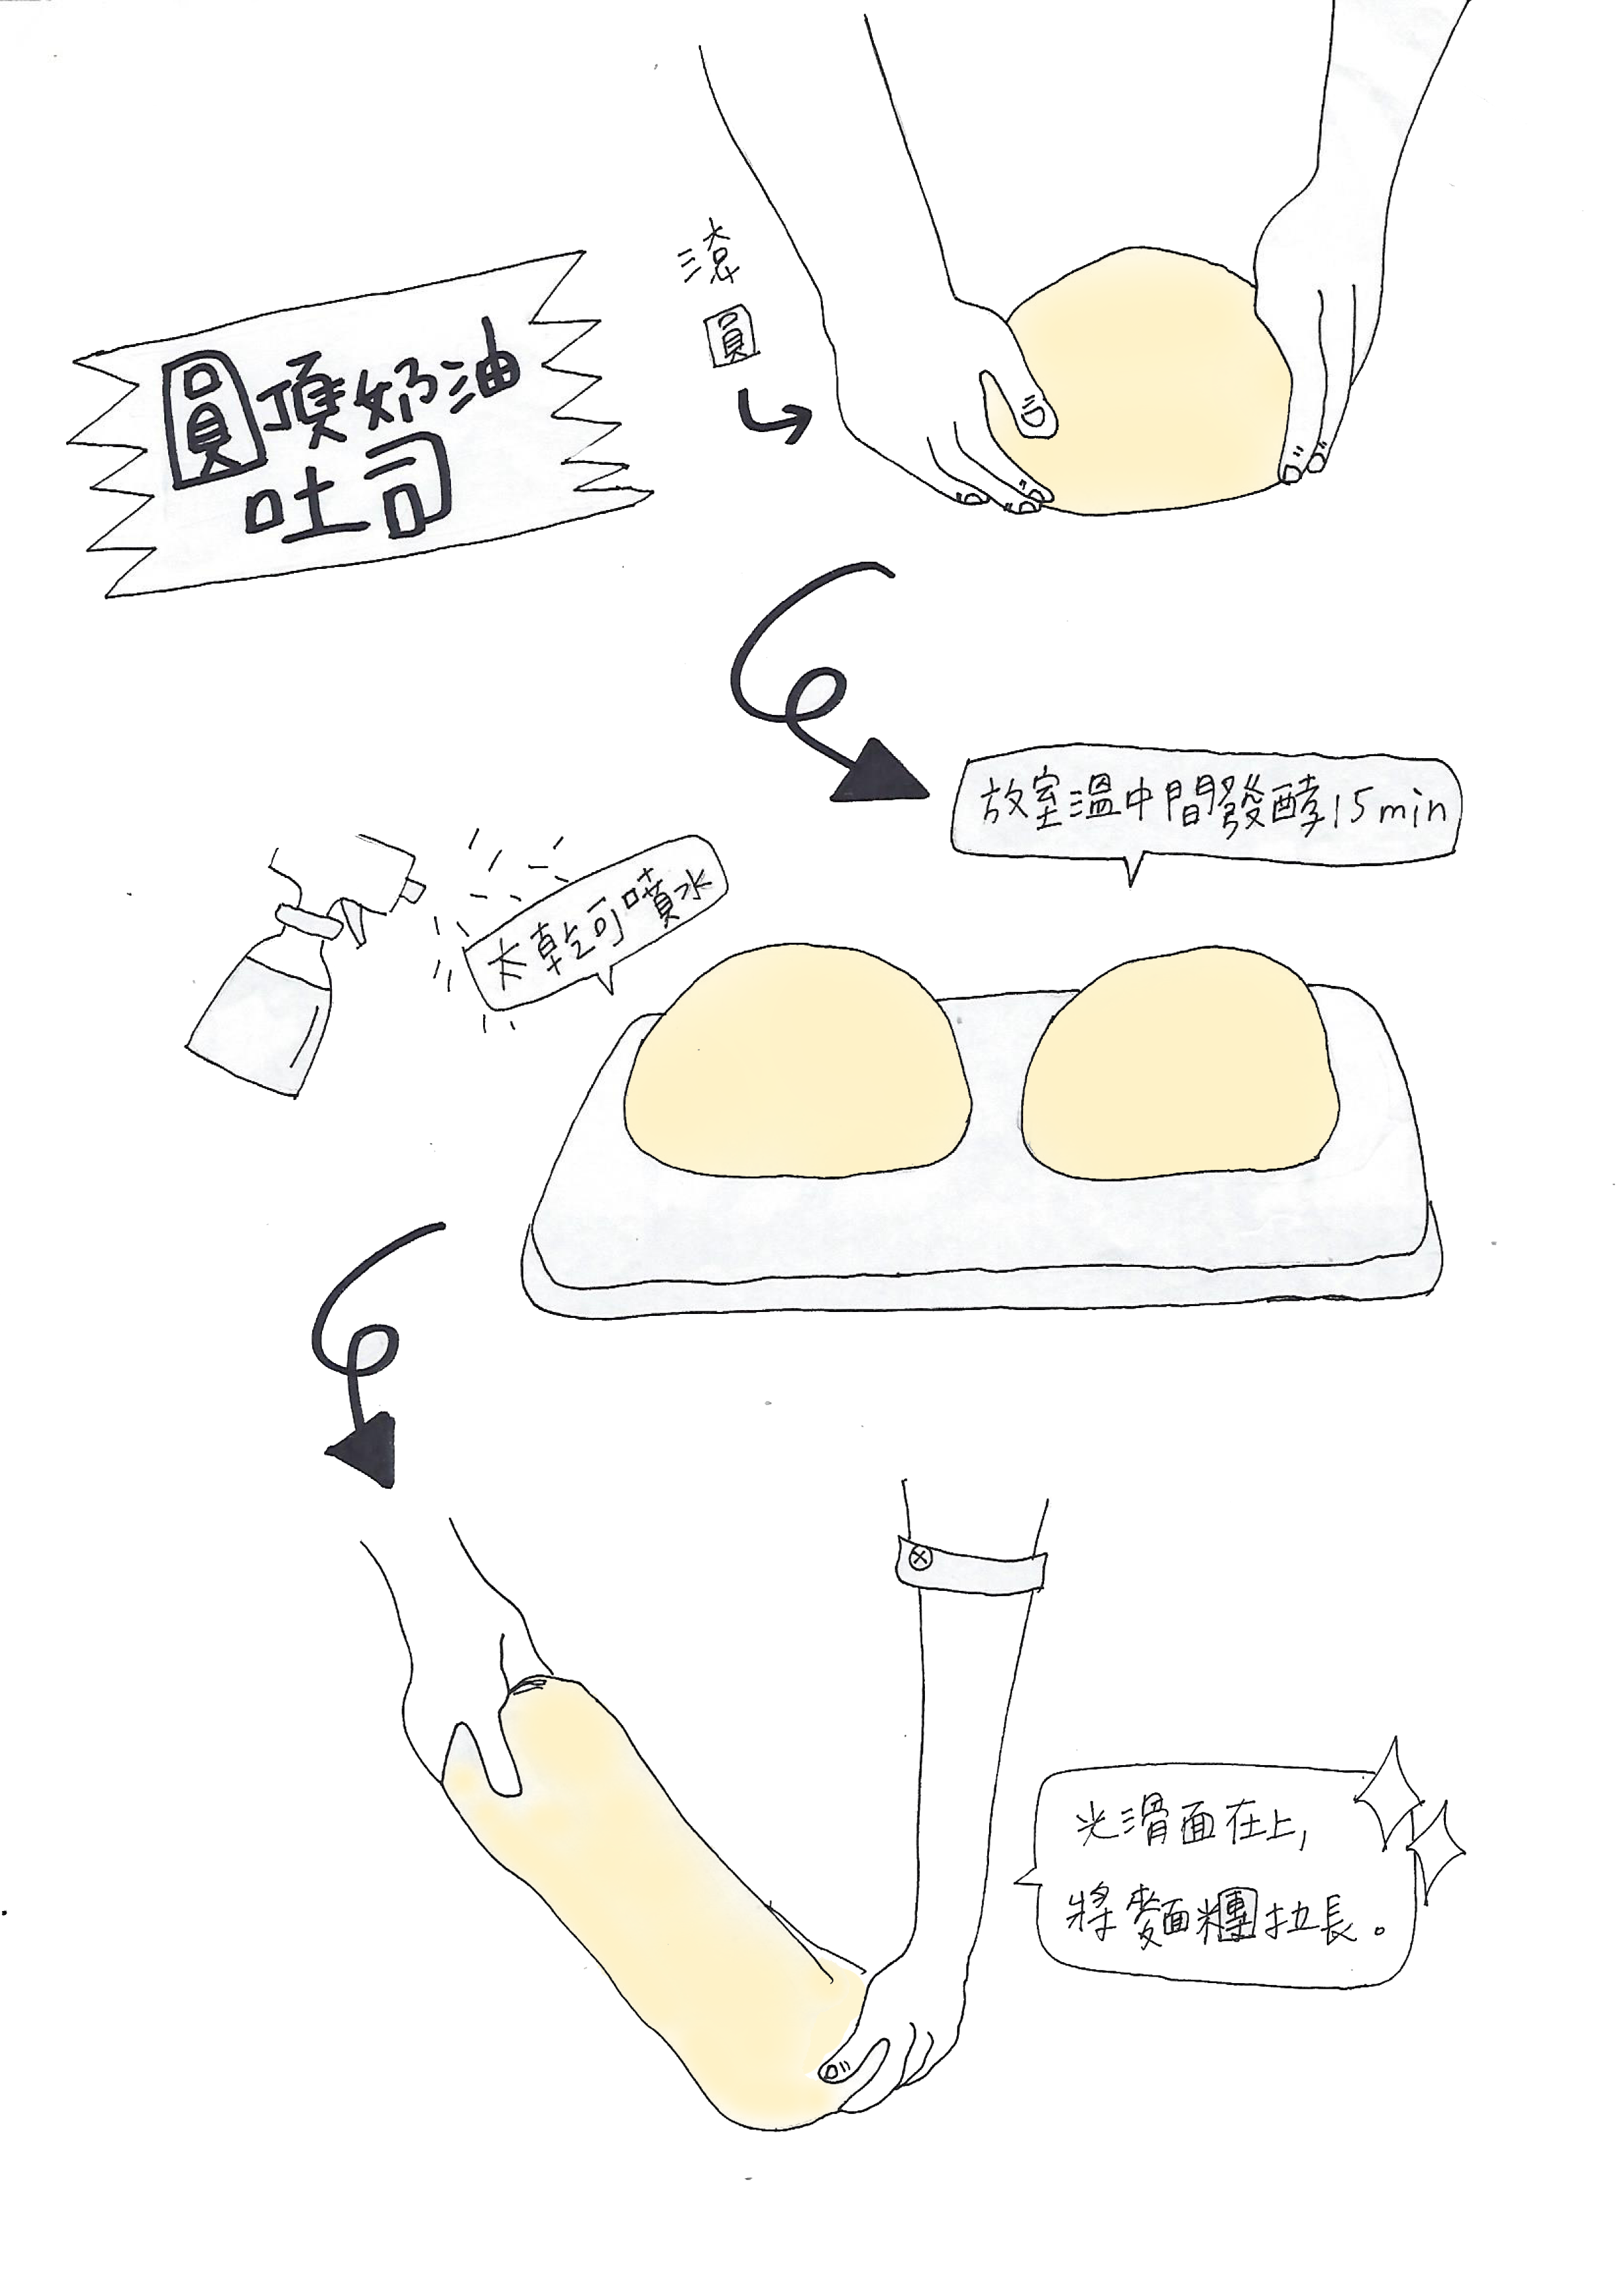 圓頂奶油
吐司
滾
圓
放室溫中間發酵15min
太乾可噴水
光滑面在上,
將麵糰拉長。